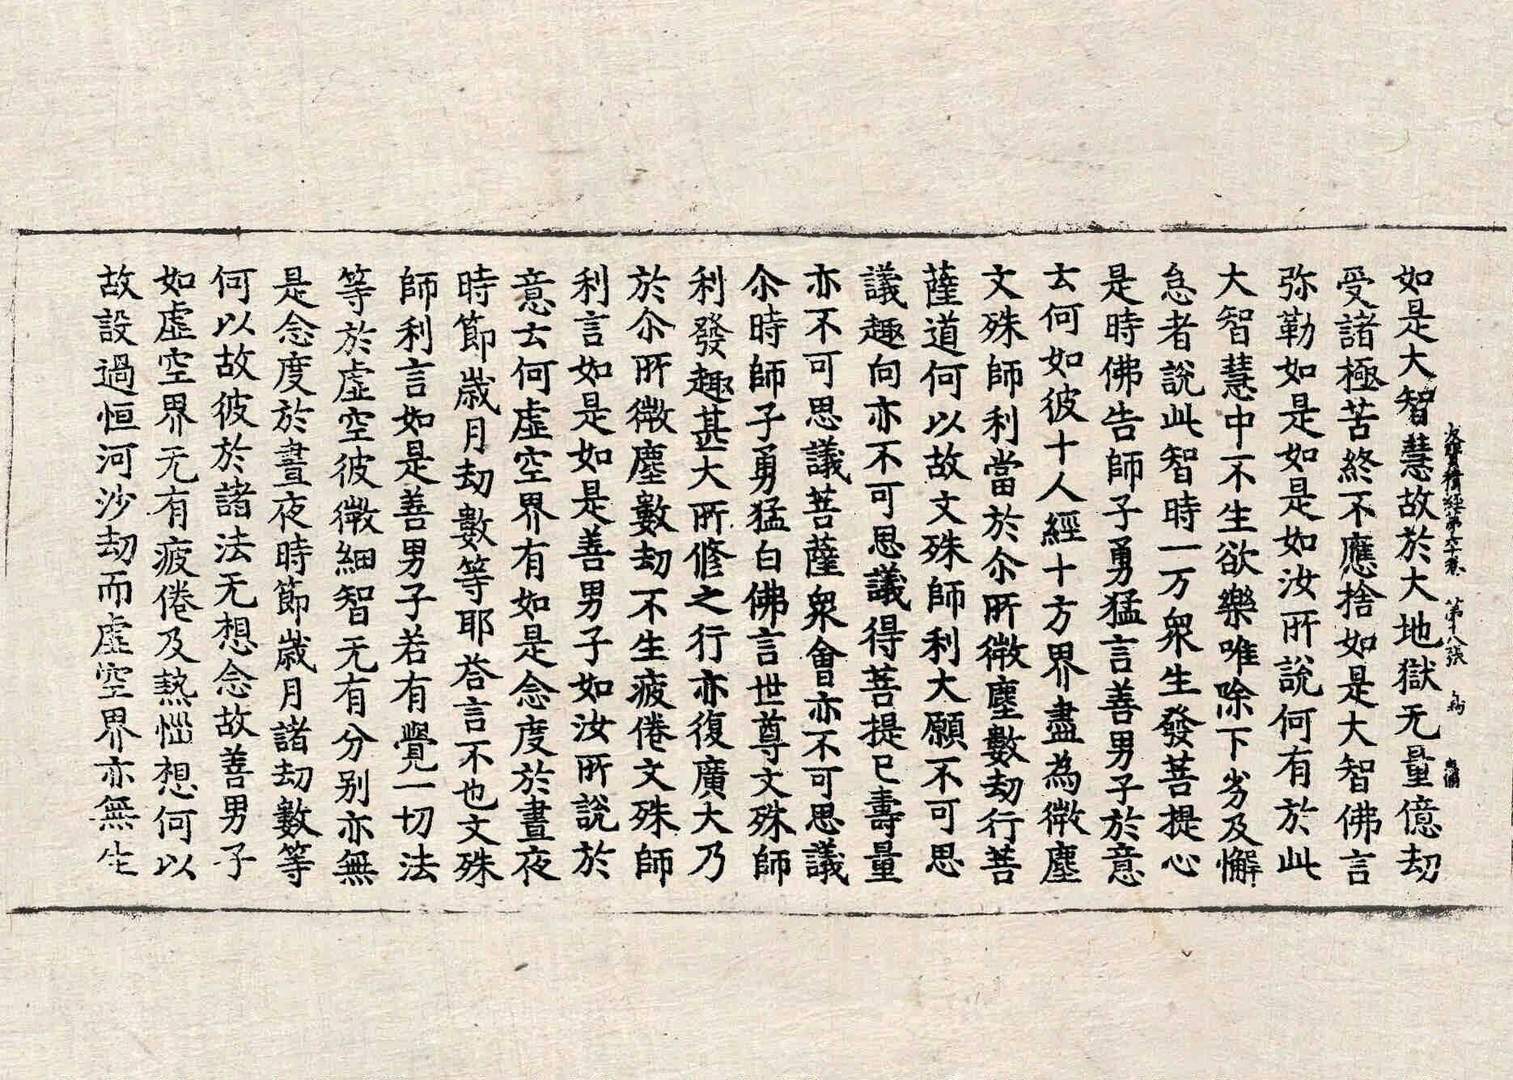 大寶積經第六十卷 第十八張
如是大智慧故於大地獄无量億劫
受諸極苦終不應捨如是大智佛言
弥勒如是如是如汝所說何有於此
大智慧中不生欲樂唯除下劣及懈
怠者說此智時一万衆生發菩提心
是時佛告師子勇猛言善男子於意
云何如彼十人經十方界盡為微塵
文殊師利當於尒所微塵數劫行菩
薩道何以故文殊師利大願不可思
議趣向亦不可思議得菩提已壽量
亦不可思議菩薩衆會亦不可思議
尒時師子勇猛白佛言世尊文殊師
利發趣甚大所修之行亦復廣大乃
於尒所微塵數劫不生疲倦文殊師
利言如是如是善男子如汝所說於
意云何虛空界有如是念度於晝夜
時節歲月劫數等耶荅言不也文殊
師利言如是善男子若有覺一切法
等於虛空彼微細智无有分別亦無
是念度於晝夜時節歲月諸劫數等
何以故彼於諸法无想念故善男子
如虛空界无有疲倦及熱惱想何以
故設過恒河沙劫而虛空界亦無生